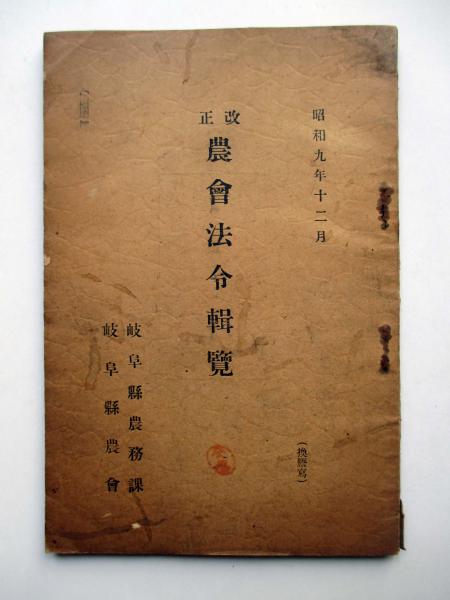 昭和九年十二月
(換謄寫)
改正
農會法令輯覽
岐阜縣農務課
岐阜縣農會